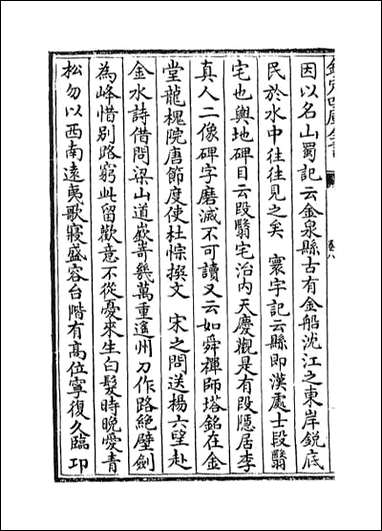 欽定四庫全書
卷八
因以名山蜀記云金泉縣古有金船沈江之東岸鋭底
民於水中往往見之矣　寰宇記云縣即漢處士段翳
宅也輿地碑目云段翳宅治内天慶觀是有段隱居李
真人二像碑字磨滅不可讀又云如舜禪師塔銘在金
堂龍槐院唐節度使杜悰撰文　宋之問送楊六望赴
金水詩借問梁山道嶔岑幾萬重遙州刀作路絶壁劍
為峰惜别路窮此留歡意不從憂來生白髮時晚愛青
松勿以西南遠夷歌寢盛容台階有高位寧復久臨卭